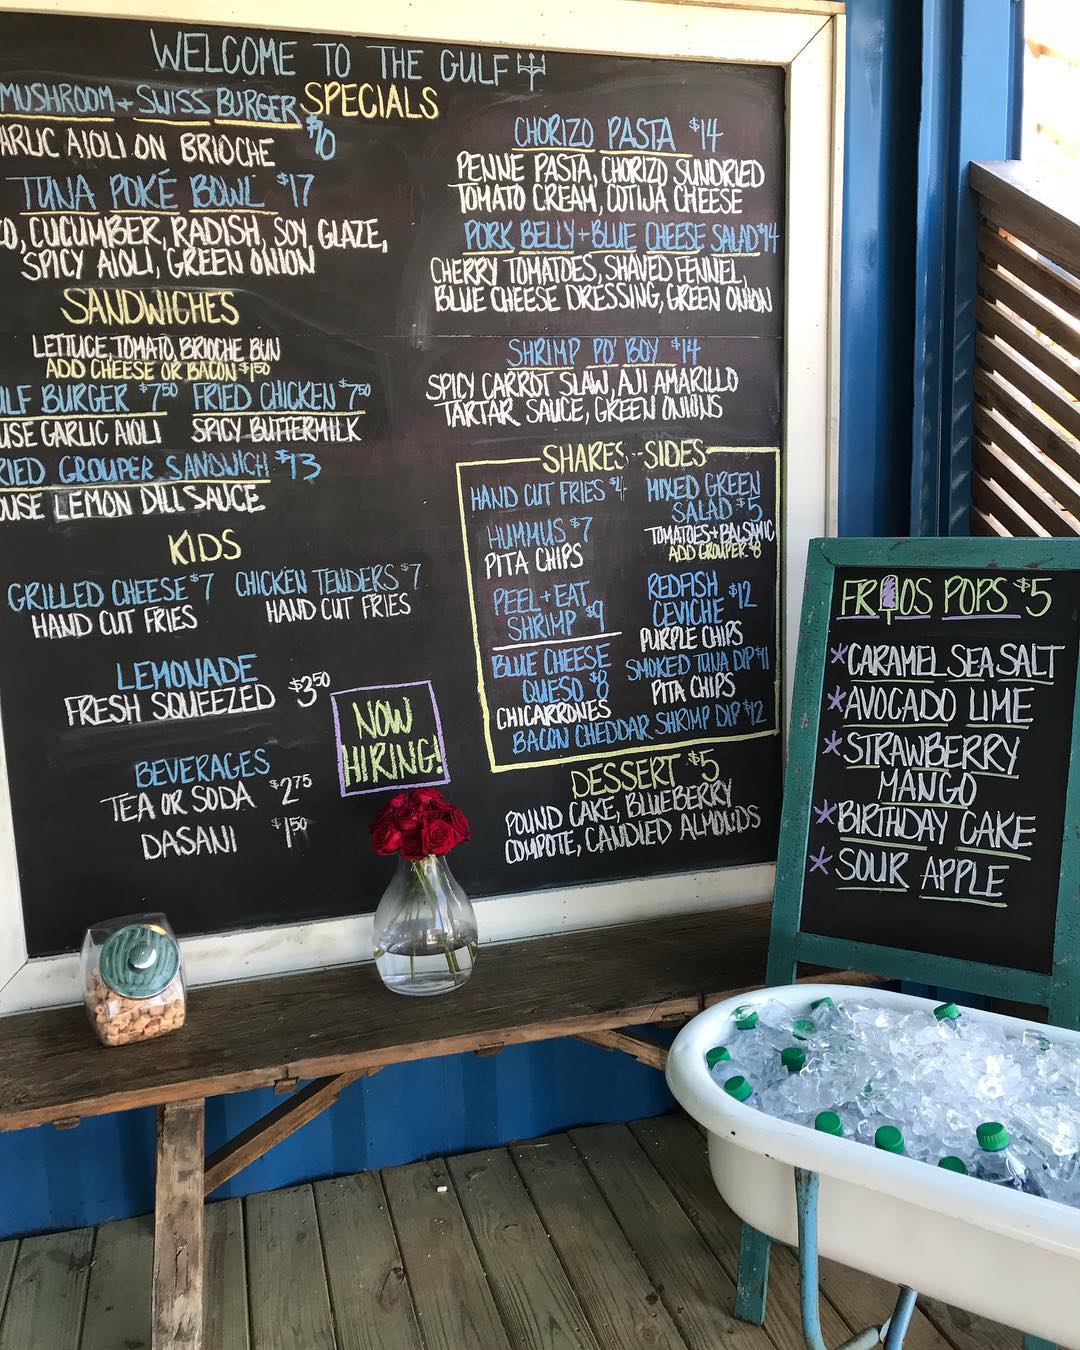 WELCOME TO THE GULF
MUSHROOM + SWISS BURGER
$10
GARLIC AIOLI ON BRIOCHE
TUNA POKÉ BOWL $17
CUCUMBER, RADISH, SOY GLAZE,
SPICY AIOLI, GREEN ONION
SPECIALS
CHORIZO PASTA $14
PENNE PASTA, CHORIZO SUNDRIED
TOMATO CREAM, COTIJA CHEESE
PORK BELLY + BLUE CHEESE SALAD $14
CHERRY TOMATOES, SHAVED FENNEL,
BLUE CHEESE DRESSING, GREEN ONION
SHRIMP PO' BOY $14
SPICY CARROT SLAW, AJI AMARILLO
TARTAR SAUCE, GREEN ONIONS
SANDWICHES
LETTUCE, TOMATO, BRIOCHE BUN
ADD CHEESE OR BACON $1.50
ULF BURGER $7.50 FRIED CHICKEN $7.50
USE GARLIC AIOLI SPICY BUTTERMILK
RIED GROUPER SANDWICH $13
OUSE LEMON DILL SAUCE
KIDS
GRILLED CHEESE $7 CHICKEN TENDERS $7
HAND CUT FRIES HAND CUT FRIES
LEMONADE
FRESH SQUEEZED $3.50
BEVERAGES
TEA OR SODA $2.75
DASANI $1.50
NOW
HIRING!
SHARES - SIDES
HAND CUT FRIES $4
HUMMUS $7
PITA CHIPS
PEEL + EAT
SHRIMP $9
BLUE CHEESE
QUESO $8
CHICARRONES
MIXED GREEN
SALAD $5
TOMATOES + BALSAMIC
ADD GROUPER $8
REDFISH
CEVICHE $12
PURPLE CHIPS
SMOKED TUNA DIP $11
PITA CHIPS
BACON CHEDDAR SHRIMP DIP $12
DESSERT $5
POUND CAKE, BLUEBERRY
COMPOTE, CANDIED ALMONDS
FRIOS POPS $5
*CARAMEL SEA SALT
*AVOCADO LIME
*STRAWBERRY
MANGO
*BIRTHDAY CAKE
*SOUR APPLE